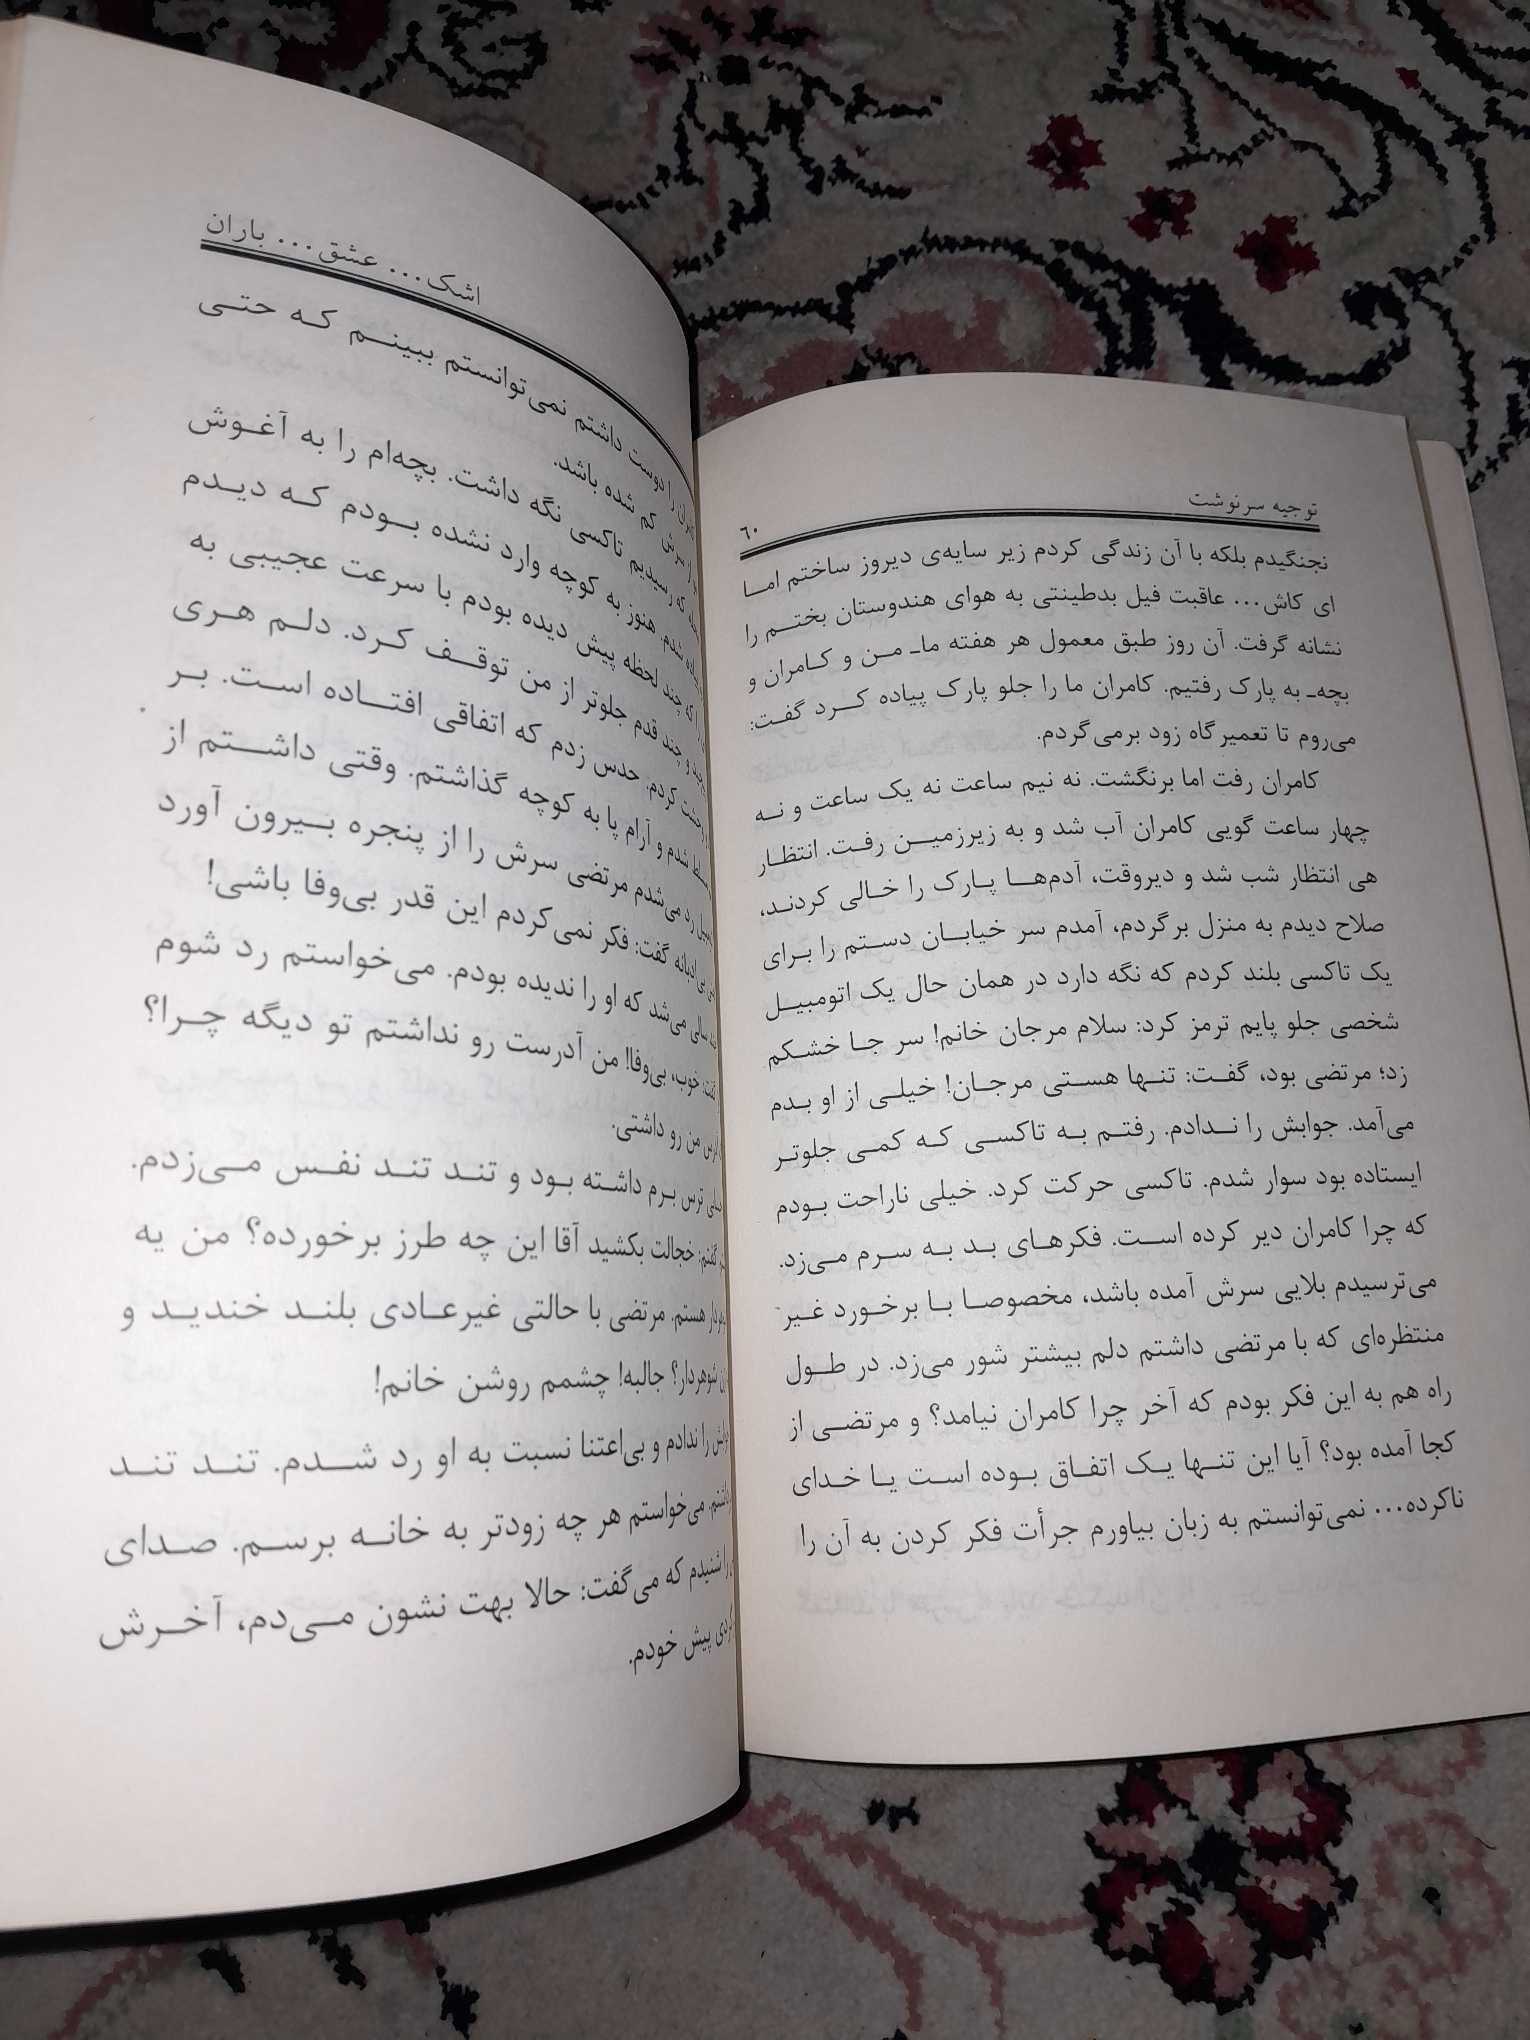 توجیه سرنوشت
۶۰
نجنگیدم بلکه با آن زندگی کردم زیر سایه‌ی دیروز ساختم اما
ای کاش... عاقبت فیل بدطینتی به هوای هندوستان بختم را
نشانه گرفت. آن روز طبق معمول هر هفته ماـ من و کامران و
بچه‌ـ به پارک رفتیم. کامران ما را جلو پارک پیاده کرد گفت:
می‌روم تا تعمیرگاه زود برمی‌گردم.
کامران رفت اما برنگشت. نه نیم ساعت نه یک ساعت و نه
چهار ساعت گویی کامران آب شد و به زیرزمین رفت. انتظار
هی انتظار شب شد و دیروقت، آدم‌ها پارک را خالی کردند،
صلاح دیدم به منزل برگردم، آمدم سر خیابان دستم را برای
یک تاکسی بلند کردم که نگه دارد در همان حال یک اتومبیل
شخصی جلو پایم ترمز کرد: سلام مرجان خانم! سر جا خشکم
زد؛ مرتضی بود، گفت: تنها هستی مرجان! خیلی از او بدم
می‌آمد. جوابش را ندادم. رفتم به تاکسی که کمی جلوتر
ایستاده بود سوار شدم. تاکسی حرکت کرد. خیلی ناراحت بودم
که چرا کامران دیر کرده است. فکرهای بد به سرم می‌زد.
می‌ترسیدم بلایی سرش آمده باشد، مخصوصا با برخورد غیر
منتظره‌ای که با مرتضی داشتم دلم بیشتر شور می‌زد. در طول
راه هم به این فکر بودم که آخر چرا کامران نیامد؟ و مرتضی از
کجا آمده بود؟ آیا این تنها یک اتفاق بوده است یا خدای
ناکرده... نمی‌توانستم به زبان بیاورم جرأت فکر کردن به آن را
اشک... عشق... باران
را دوست داشتم نمی‌توانستم ببینم که حتی
سرش کم شده باشد.
که رسیدیم تاکسی نگه داشت. بچه‌ام را به آغوش
شدم. هنوز به کوچه وارد نشده بودم که دیدم
را که چند لحظه پیش دیده بودم با سرعت عجیبی به
و چند قدم جلوتر از من توقف کرد. دلم هری
کردم. حدس زدم که اتفاقی افتاده است. بر
شدم و آرام پا به کوچه گذاشتم. وقتی داشتم از
رد می‌شدم مرتضی سرش را از پنجره بیرون آورد
بی‌ادبانه گفت: فکر نمی‌کردم این قدر بی‌وفا باشی!
سالی می‌شد که او را ندیده بودم. می‌خواستم رد شوم
گفت: خوب، بی‌وفا! من آدرست رو نداشتم تو دیگه چرا؟
من رو داشتی.
ترس برم داشته بود و تند تند نفس می‌زدم.
گفتم: خجالت بکشید آقا این چه طرز برخورده؟ من یه
هستم. مرتضی با حالتی غیرعادی بلند خندید و
شوهردار؟ جالبه! چشمم روشن خانم!
را ندادم و بی‌اعتنا نسبت به او رد شدم. تند تند
می‌خواستم هر چه زودتر به خانه برسم. صدای
را شنیدم که می‌گفت: حالا بهت نشون می‌دم، آخرش
پیش خودم.